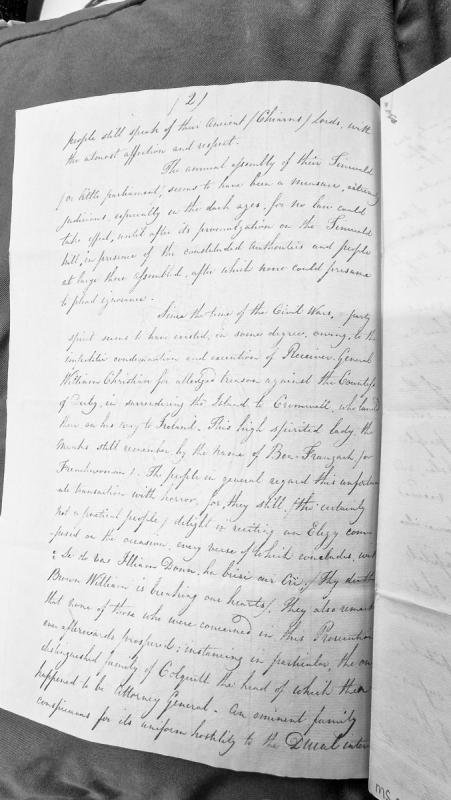 (2)
people still speak of their ancient (Chiarns) Lords, with
the utmost affection and respect.
The annual assembly of their Tinwald
(or little parliament) seems to have been a measure, extremely
judicious, especially in the dark ages, for no law could
take effect, until after its promulgation on the Tinwald
hill, in presence of the constituted authorities and people
at large there assembled, after which none could presume
to plead ignorance.
Since the time of the Civil Wars, party
spirit seems to have existed, in some degree, owing, to the
condemnation and execution of Receiver General
William Christian for alledged treason against the Countess
of Derby, in surrendering the Island to Cromwell, who landed
there on his way to Ireland. This high spirited lady, the
Manks still remember by the name of Ben-Frangagh (or
Frenchwoman). The people in general regard this unfortun
ate transaction with horror, for, they still, (tho' certainly
not a poetical people) delight in reciting an Elegy com-
posed on the occasion, every verse of which concludes, with
" dy vas Illiam Donn, he brisi our Cri. (Thy death
Brown William is breaking our hearts). They also remark
that none of those who were concerned in this Prosecution
ever afterwards prospered; instancing in particular, the once
distinguished family of Colquitt the head of which then
happened to be Attorney General. An eminent family
conspicuous for its uniform hostility to the Ducal inter
MS